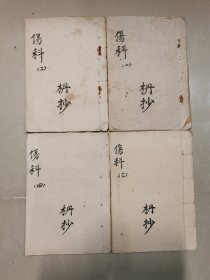 傷科(一)
枬抄
傷科(二)
枬抄
傷科(三)
枬抄
傷科(四)
枬抄